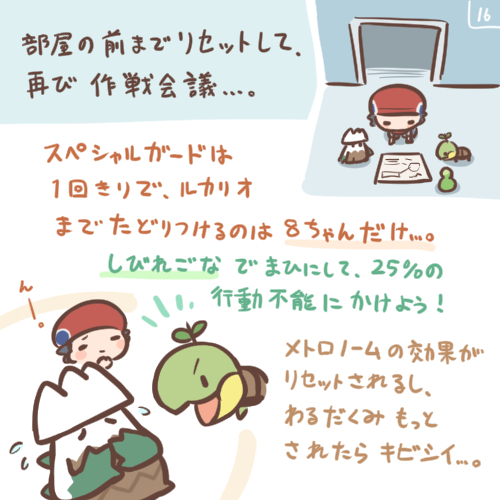 16
部屋の前までリセットして、
再び作戦会議…。
スペシャルガードは
1回きりで、ルカリオ
までたどりつけるのは8ちゃんだけ…。
しびれごなでまひにして、25%の
行動不能にかけよう！
んー。
メトロノームの効果が
リセットされるし、
わるだくみもっと
されたらキビシイ…。